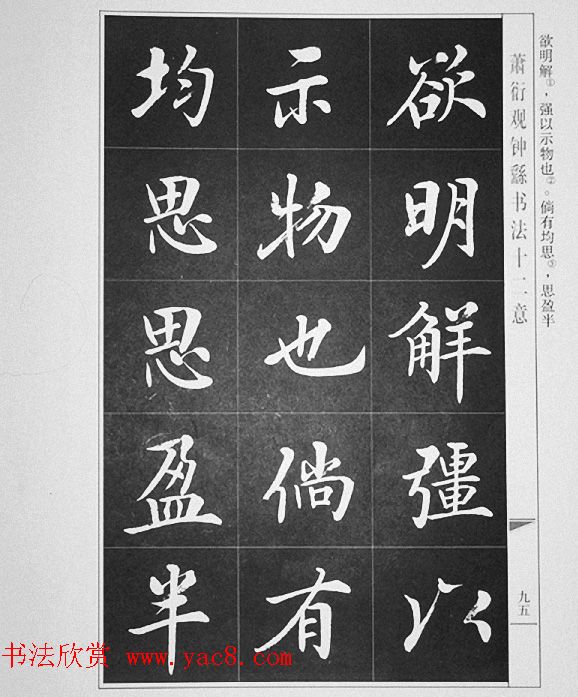 欲明解①，強以示物也②。倘有均思③，思盈半
萧衍观钟繇书法十二意
九五
欲明解彊以
示物也倘有
均思思盈半
书法欣赏 www.yac8.com